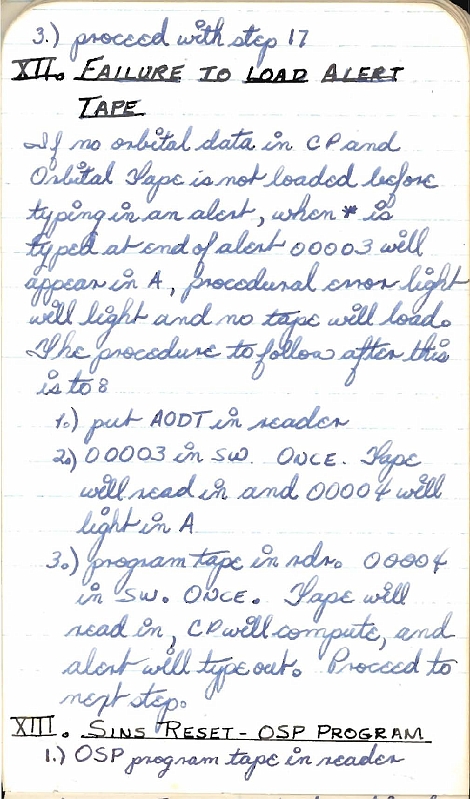 3.) proceed with step 17
XII. FAILURE TO LOAD ALERT
TAPE
If no orbital data in CP and
Orbital Tape is not loaded before
typing in an alert, when * is
typed at end of alert 00003 will
appear in A, procedural error light
will light and no tape will load.
The procedure to follow after this
is to:
1.) put AODT in reader
2.) 00003 in SW. ONCE. Tape
will read in and 00004 will
light in A
3.) program tape in rdr. 00004
in SW. ONCE. Tape will
read in, CP will compute, and
alert will type out. Proceed to
next step.
XIII. SINS RESET - OSP PROGRAM
1.) OSP program tape in reader